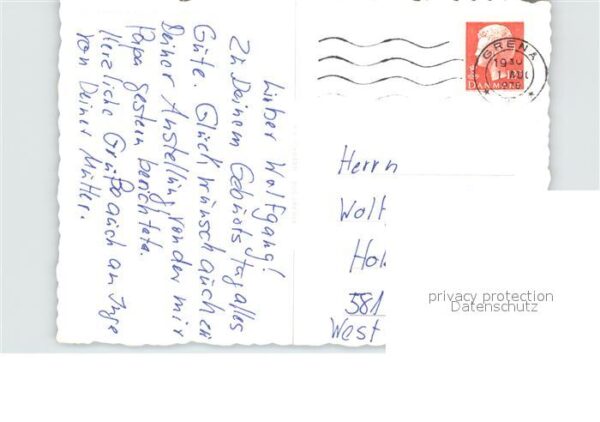 Lieber Wolfgang!
Zu Deinem Geburtstag alles
Gute. Glückwünsch auch zu
Deiner Anstellung, von der mir
Papa gestern berichtete.
Herzliche Grüße auch an Inge
von Deiner Mutter.
GRENA
19
DANMARK
Herrn
Wolf
Hol
581
West
privacy protection
Datenschutz